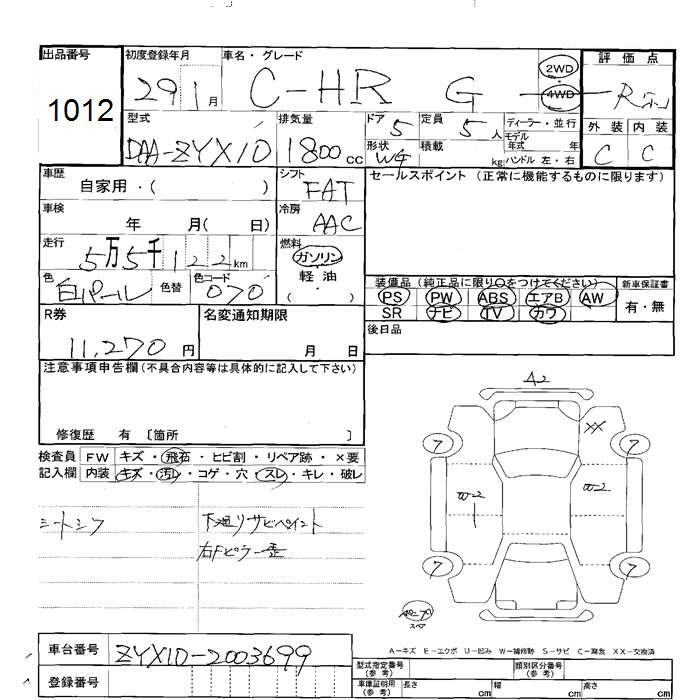 出品番号 初度登録年月 車名・グレード 評価点
1012 29 1月 C-HR G 2WD 4WD R
型式 排気量 ドア 定員 ディーラー・並行 外装 内装
DAA-ZYX10 1800cc 5 5人 モデル年式 年 C C
形状 積載 kg ハンドル 左・右
車歴 シフト セールスポイント (正常に機能するものに限ります)
自家用・( ) FAT
車検 冷房
年 月( 日) AAC
走行 燃料
5万5千122km ガソリン
軽油
色 色替 色コード ( ・ )
白パール 070
装備品 (純正品に限り○をつけてください) 新車保証書
PS PW ABS エアB AW 有・無
SR ナビ TV カワ
R券 名変通知期限 後日品
11,270円 月 日
注意事項申告欄(不具合内容等は具体的に記入して下さい)
修復歴 有 〔箇所 〕
検査員 FW キズ・飛石・ヒビ割・リペア跡・×要
記入欄 内装 キズ・汚レ・コゲ・穴・スレ・キレ・破レ
シートシワ 下廻りサビペイント
右Fピラー歪
A2
XX
7 7
W-2 W-2
7 7
スペア
A=キズ E=エクボ U=凹み W=補修跡 S=サビ C=腐食 XX=交換済
車台番号 ZYX10-2003699
登録番号
型式指定番号(参考) 類別区分番号(参考)
車庫証明用(参考) 長さ cm 幅 cm 高さ cm